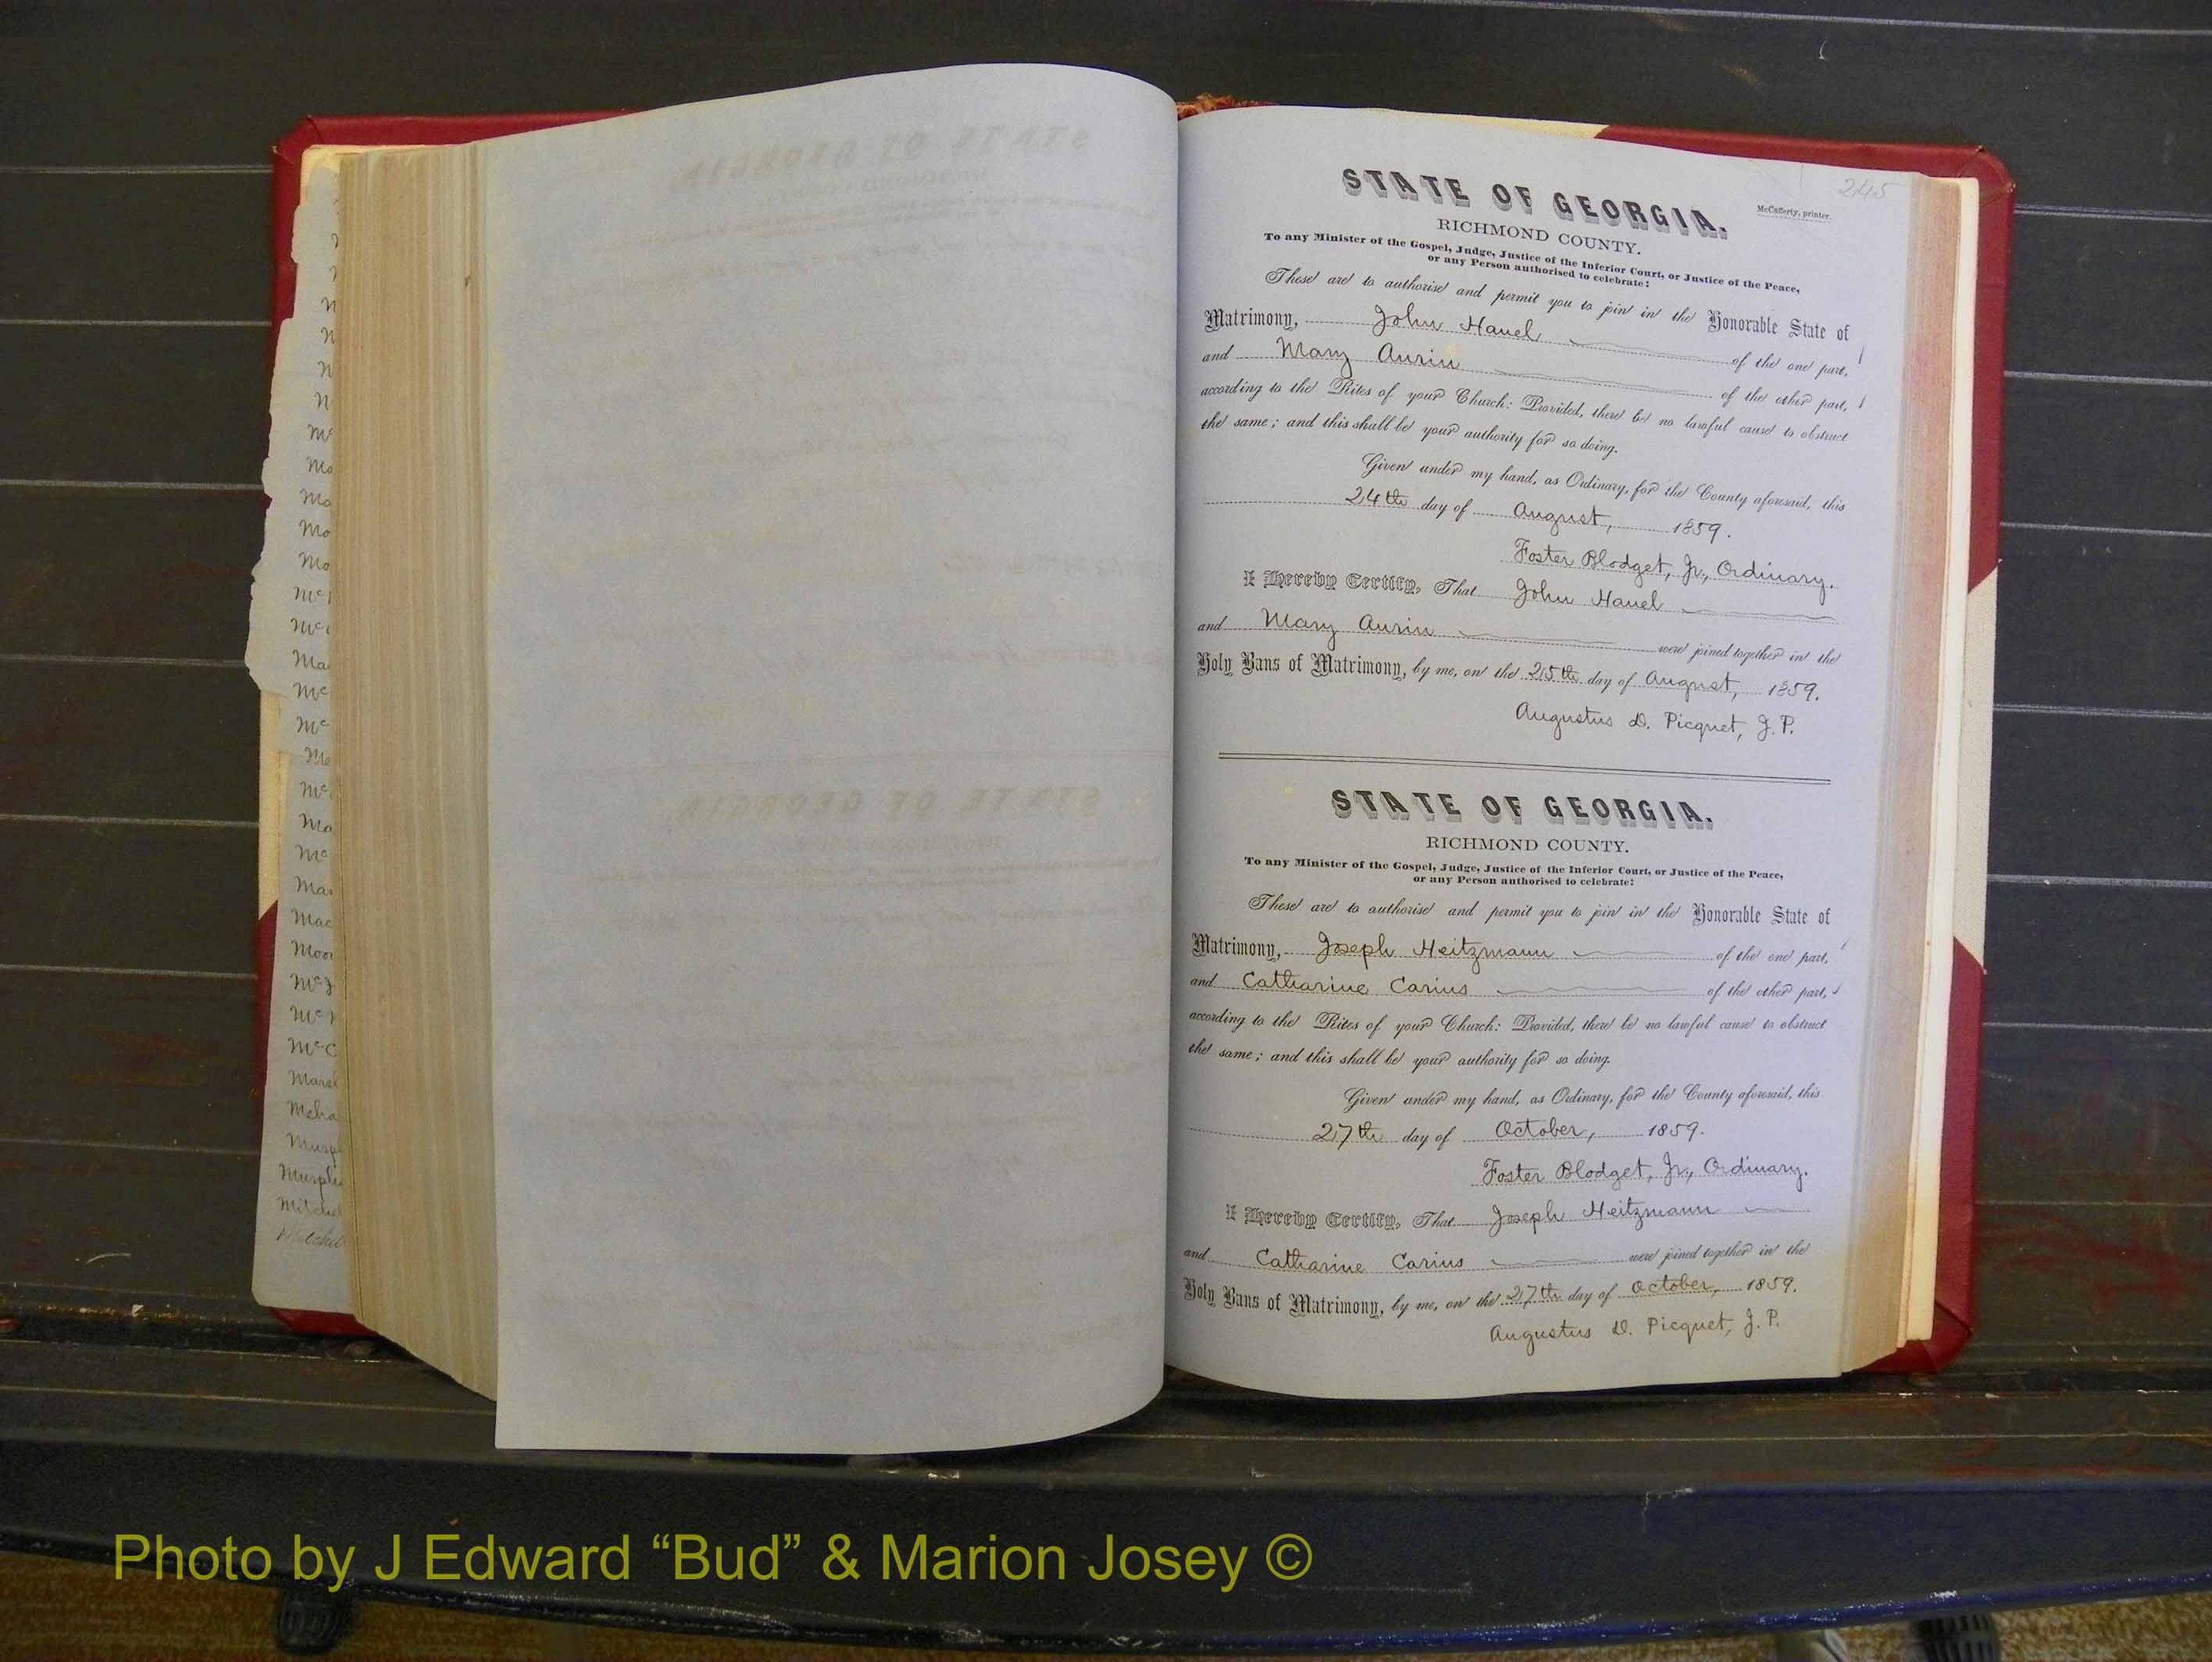 245
McCafferty, printer.
STATE OF GEORGIA.
RICHMOND COUNTY.
To any Minister of the Gospel, Judge, Justice of the Inferior Court, or Justice of the Peace,
or any Person authorised to celebrate:
These are to authorise and permit you to join in the Honorable State of
Matrimony, John Hauel of the one part,
and Mary Aurin of the other part,
according to the Rites of your Church: Provided, there be no lawful cause to obstruct
the same; and this shall be your authority for so doing.
Given under my hand, as Ordinary, for the County aforesaid, this
24th day of August, 1859.
Foster Blodget, Jr., Ordinary.
I Hereby Certify, That John Hauel
and Mary Aurin were joined together in the
Holy Bans of Matrimony, by me, on the 25th day of August, 1859.
Augustus D. Picquet, J. P.
STATE OF GEORGIA.
RICHMOND COUNTY.
To any Minister of the Gospel, Judge, Justice of the Inferior Court, or Justice of the Peace,
or any Person authorised to celebrate:
These are to authorise and permit you to join in the Honorable State of
Matrimony, Joseph Heitzmann of the one part,
and Catharine Carius of the other part,
according to the Rites of your Church: Provided, there be no lawful cause to obstruct
the same; and this shall be your authority for so doing.
Given under my hand, as Ordinary, for the County aforesaid, this
27th day of October, 1859.
Foster Blodget, Jr., Ordinary.
I Hereby Certify, That Joseph Heitzmann
and Catharine Carius were joined together in the
Holy Bans of Matrimony, by me, on the 27th day of October, 1859.
Augustus D. Picquet, J. P.
Photo by J Edward “Bud” & Marion Josey ©